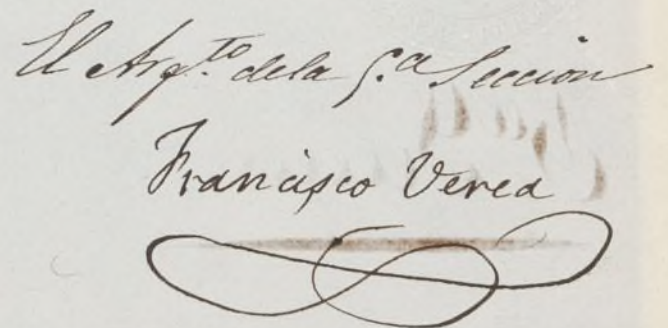 El Arq.to dela 5.a Seccion
Francisco Verea